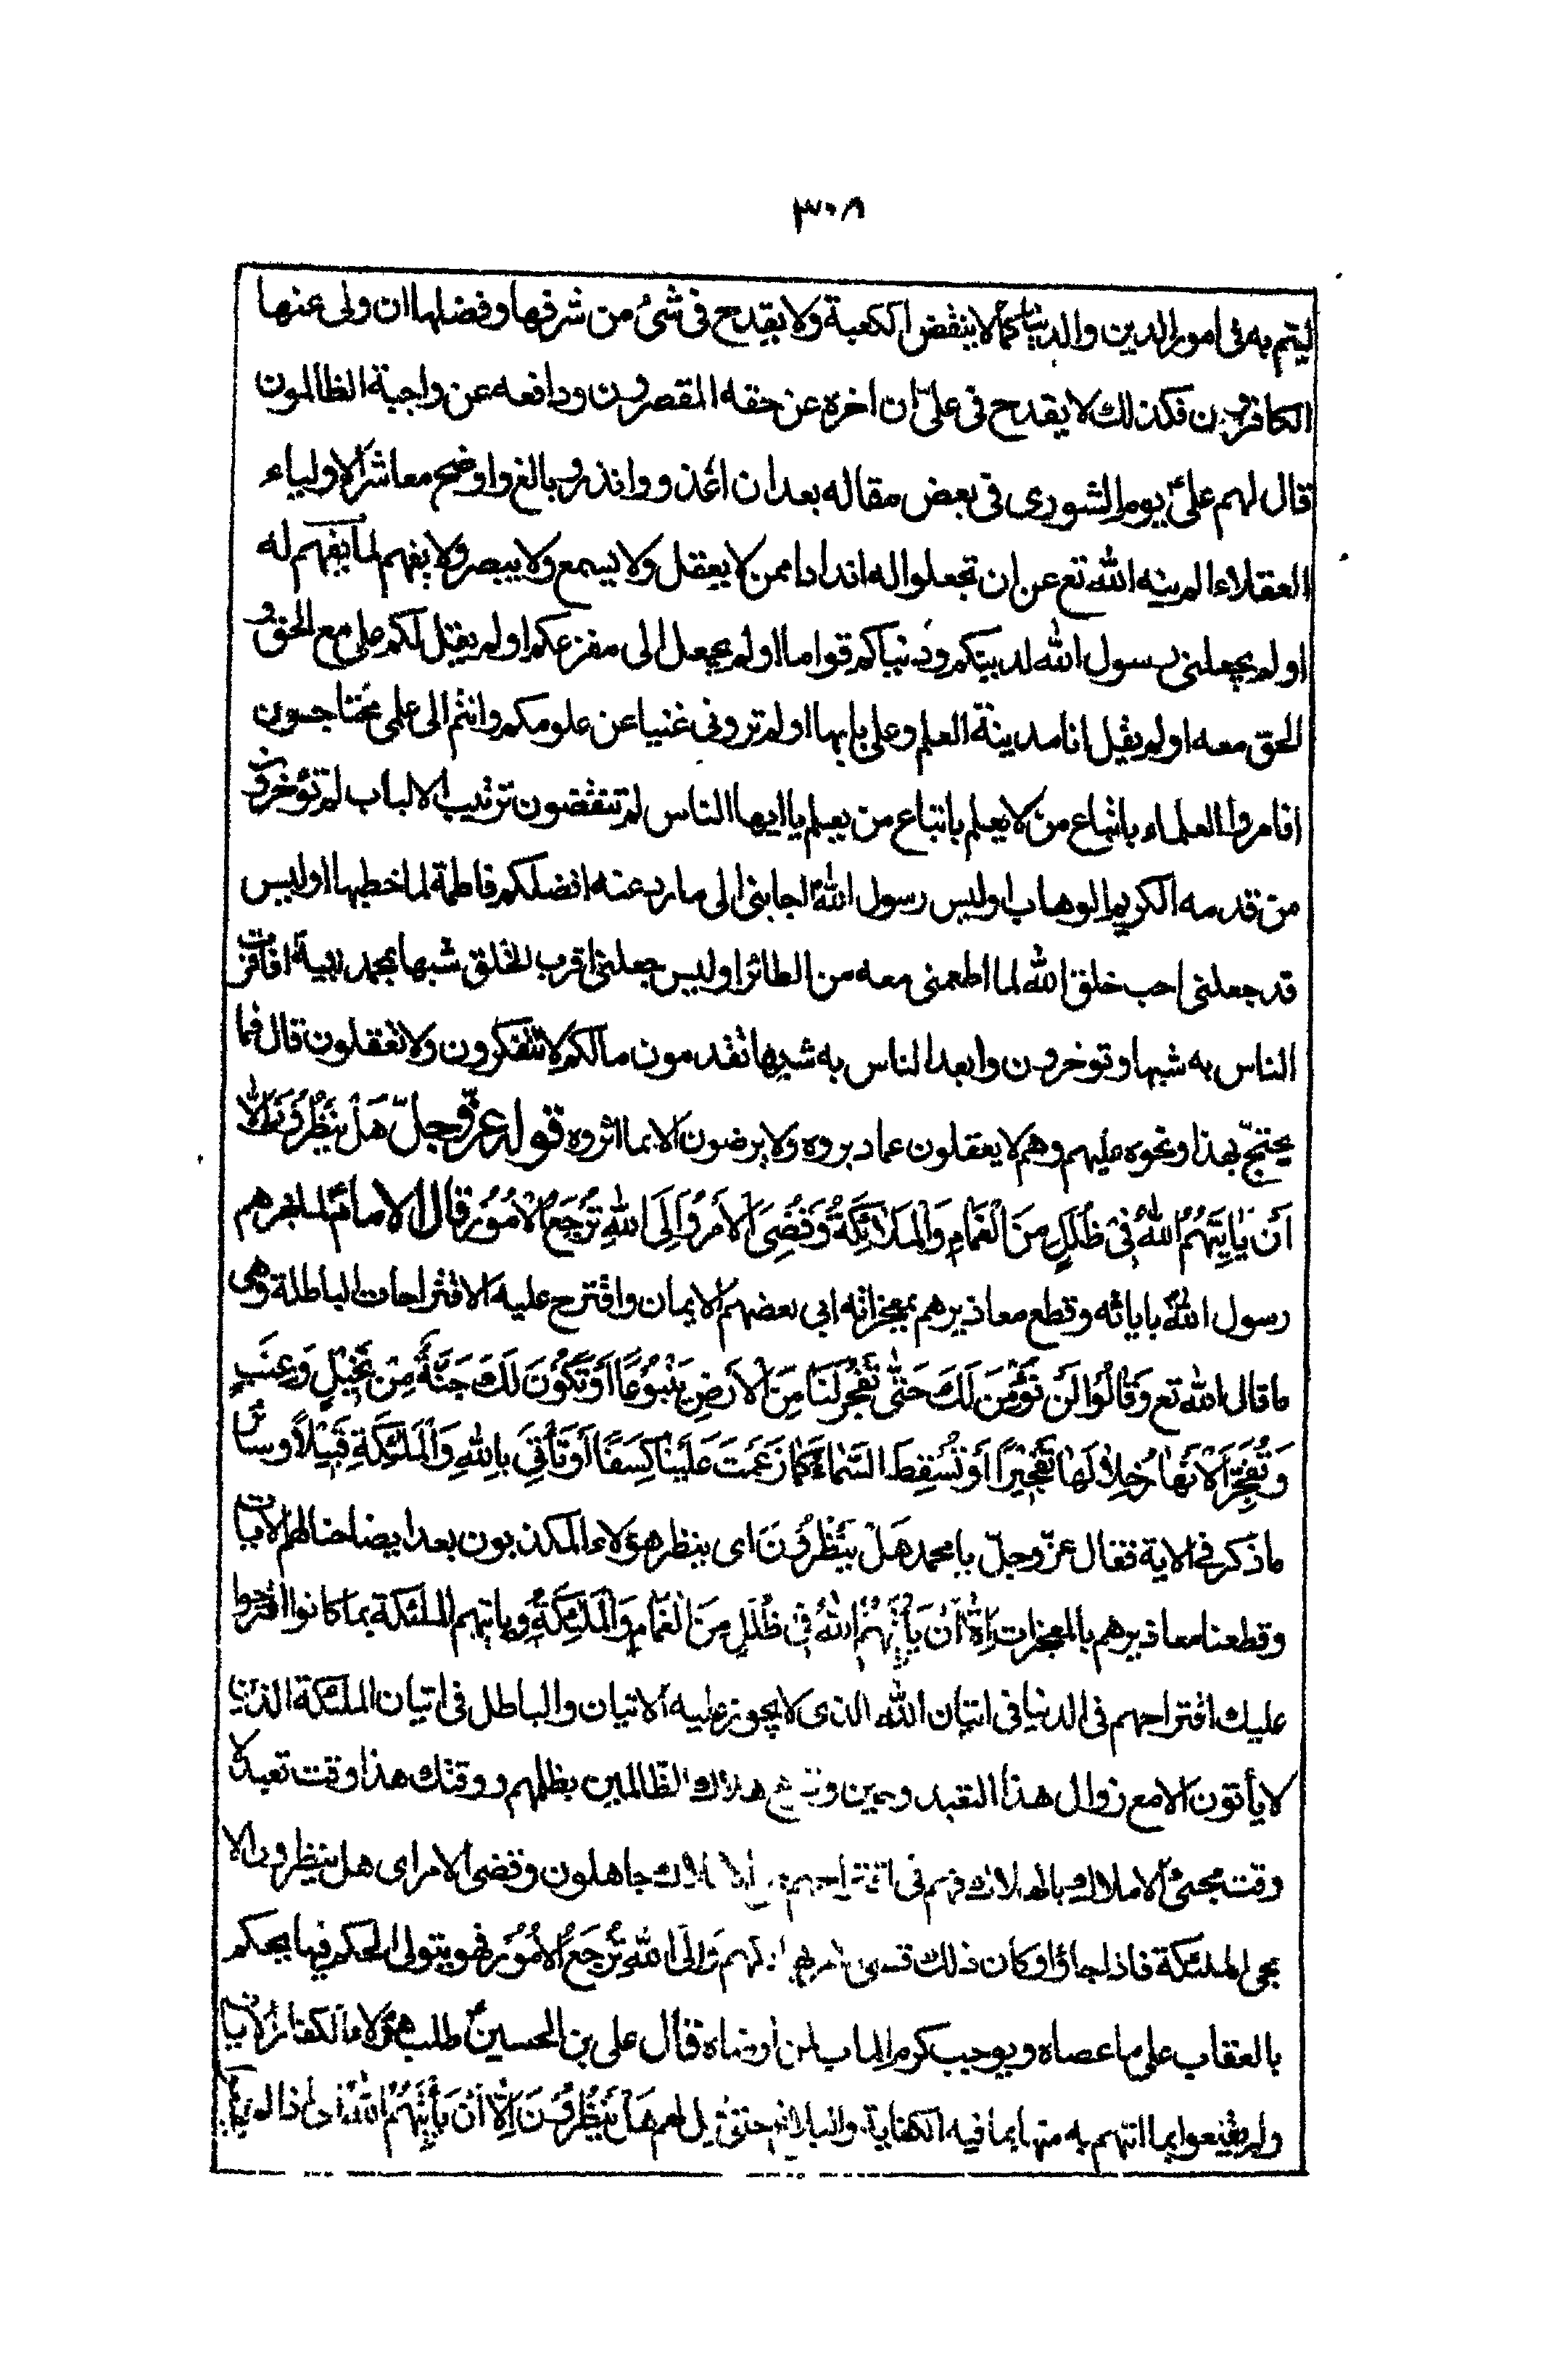 ٣٠٨
ليتم به فى امور الدين والدنيا كما لا ينقض الكعبة ولا يقدح فى شئ من شرفها وفضلها ان ولى عنها
الكافرون فكذلك لا يقدح فى علىّ ان اخره عن حقه المقصرون ودافعه عن واجبة الظالمون
قال لهم علىّ يوم الشورى فى بعض مقاله بعد ان اعذر وانذر وبالغ واوضح معاشر الاولياء
العقلاء الم ينه الله تع عن ان تجعلوا له اندادا ممن لا يعقل ولا يسمع ولا يبصر ولا يفهم لما يفهم له
اولم يجعلنى رسول الله لدينكم ودنياكم قواما اولم يجعل الى مفزعكم اولم يقل لكم على مع الحق و
الحق معه اولم يقل انا مدينة العلم وعلى بابها اولم ترونى غنيا عن علومكم وانتم الى على محتاجون
افامروا العلماء باتباع من لا يعلم باتباع من يعلم يا ايها الناس لم تنقضون ترتيب الالباب لم تؤخرون
من قدمه الكريم الوهاب اوليس رسول الله اجابنى الى ما رد عنه افضلكم فاطمة لما خطبها اوليس
قد جعلنى احب خلق الله لما اطعمنى معه من الطائر اوليس جعلنى اقرب الخلق شبها بمحمد نبيه افاقرب
الناس به شبها وتوخرون وابعد الناس به شبها تقدمون مالكم لا تتفكرون ولا تعقلون قال فما
يحتج بهذا ونحوه عليهم وهم لا يعقلون عما دبروه ولا يرضون الا بما اثروه قوله عزّ وجلّ هَلْ يَنْظُرُونَ اِلّا
اَنْ يَاْتِيَهُمُ اللهُ فِىْ ظُلَلٍ مِنَ الْغَمَامِ وَالْمَلَائِكَةُ وَقُضِىَ الْاَمْرُ وَاِلَى اللهِ تُرْجَعُ الْاُمُوْرُ قال الامام لما بهرهم
رسول الله باياته وقطع معاذيرهم بمعجزاته ابى بعضهم الايمان واقترح عليه الاقتراحات الباطلة وهى
ما قال الله تع وَقَالُوْا لَنْ نُؤْمِنَ لَكَ حَتّٰى تَفْجُرَ لَنَا مِنَ الْاَرْضِ يَنْبُوْعًا اَوْ تَكُوْنَ لَكَ جَنَّةٌ مِنْ نَخِيْلٍ وَعِنَبٍ
وَتُفَجِّرَ الْاَنْهَارَ خِلَالَهَا تَفْجِيْرًا اَوْ تُسْقِطَ السَّمَاءَ كَمَا زَعَمْتَ عَلَيْنَا كِسَفًا اَوْ تَأْتِىَ بِاللهِ وَالْمَلٰئِكَةِ قَبِيْلًا وسائر
ما ذكر فى الاية فقال عزّ وجلّ يا محمد هَلْ يَنْظُرُوْنَ اى ينظر هؤلاء المكذبون بعد ايضاحنا لهم الايات
وقطعنا معاذيرهم بالمعجزات اِلّا اَنْ يَأْتِيَهُمُ اللهُ فِىْ ظُلَلٍ مِنَ الْغَمَامِ وَالْمَلٰئِكَةُ وياتيهم الملئكة بما كانوا اقترحوا
عليك اقتراحهم فى الدنيا فى اتيان الله الذى لا يجوز عليه الاتيان والباطل فى اتيان الملئكة الذين
لا يأتون الا مع زوال هذا التعبد وحين وقوع هلاك الظالمين بظلمهم ووقتك هذا وقت تعبد لا
وقت مجئ الاملاك بالهلاك فهم فى اقتراحهم جاهلون وقضى الامر اى هل ينظرون الا
مجى الملئكة فاذا جاؤا وكان ذلك وَاِلَى اللهِ تُرْجَعُ الْاُمُوْرُ فهو يتولى الحكم فيها يحكم
بالعقاب على ما عصاه ويوجب كرم الماب لمن ارضاه قال على بن الحسين طلب هؤلاء الكفار الايات
ولم يقنعوا بما اتيهم به منها بما فيه الكفاية والبلاغ حتى قيل لهم هَلْ يَنْظُرُوْنَ اِلّا اَنْ يَأْتِيَهُمُ اللهُ اى اذا لم